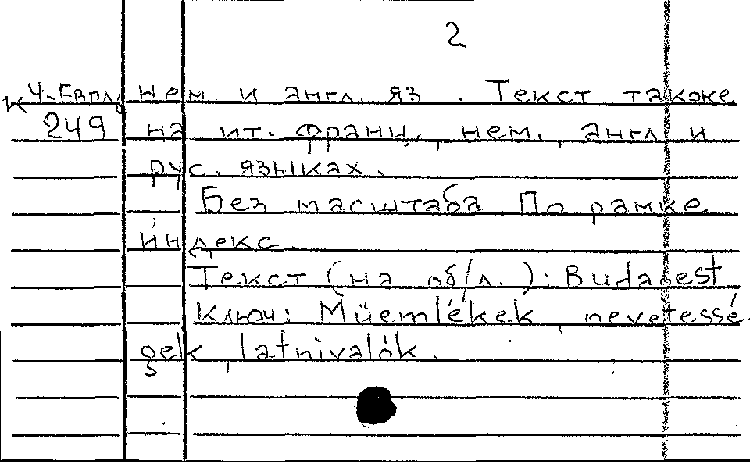 2
К 4-Европ. нем и англ. яз. Текст также
249 на ит. франц., нем., англ и
рус. языках.
Без масштаба По рамке
индекс.
Текст (на об/л.): Budapest
Ключ: Müemlékek, nevetessé-
gek, latnivalók.